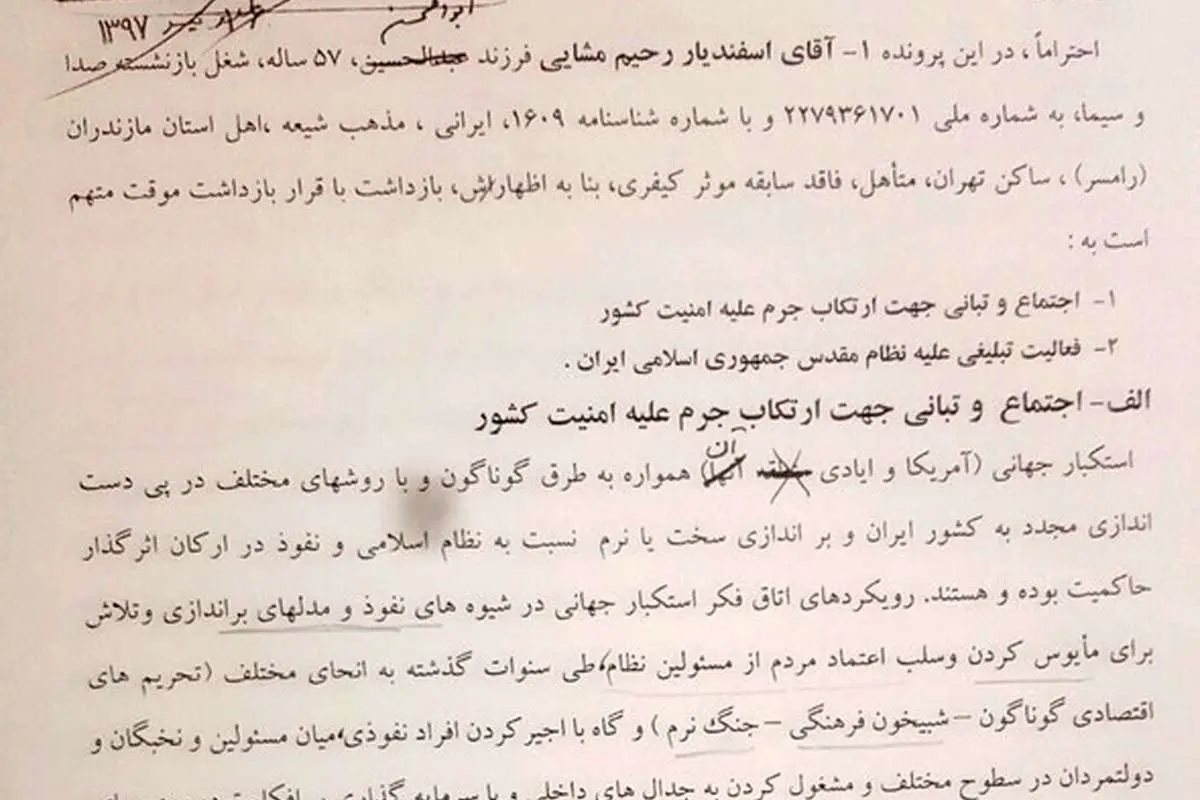 ۱۳۹۷
ابوالحسن
احتراماً، در این پرونده ۱- آقای اسفندیار رحیم مشایی فرزند عبدالحسین، ۵۷ ساله، شغل بازنشسته صدا
و سیما، به شماره ملی ۲۲۷۹۳۶۱۷۰۱ و با شماره شناسنامه ۱۶۰۹، ایرانی ، مذهب شیعه ،اهل استان مازندران
(رامسر) ، ساکن تهران، متأهل، فاقد سابقه موثر کیفری، بنا به اظهاراش، بازداشت با قرار بازداشت موقت متهم
است به :
۱- اجتماع و تبانی جهت ارتکاب جرم علیه امنیت کشور
۲- فعالیت تبلیغی علیه نظام مقدس جمهوری اسلامی ایران .
الف- اجتماع و تبانی جهت ارتکاب جرم علیه امنیت کشور
آن
استکبار جهانی (آمریکا و ایادی آنها) همواره به طرق گوناگون و با روشهای مختلف در پی دست
اندازی مجدد به کشور ایران و بر اندازی سخت یا نرم نسبت به نظام اسلامی و نفوذ در ارکان اثرگذار
حاکمیت بوده و هستند. رویکردهای اتاق فکر استکبار جهانی در شیوه های نفوذ و مدلهای براندازی وتلاش
برای مأیوس کردن وسلب اعتماد مردم از مسئولین نظام،طی سنوات گذشته به انحای مختلف (تحریم های
اقتصادی گوناگون –شبیخون فرهنگی –جنگ نرم ) و گاه با اجیر کردن افراد نفوذی،میان مسئولین و نخبگان و
دولتمردان در سطوح مختلف و مشغول کردن به جدال های داخلی و با سرمایه گذاری